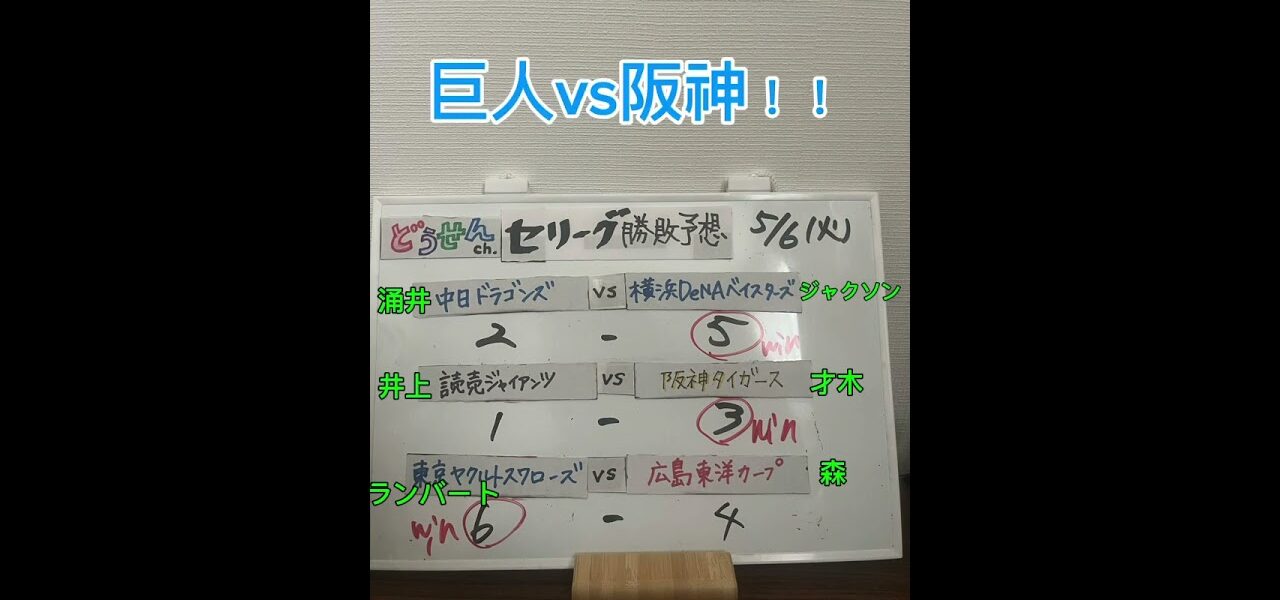 巨人vs阪神！！
どうせんch. セリーグ勝敗予想 5/6(火)
涌井 中日ドラゴンズ vs 横浜DeNAベイスターズ ジャクソン
2 - 5 win
井上 読売ジャイアンツ vs 阪神タイガース 才木
1 - 3 win
東京ヤクルトスワローズ vs 広島東洋カープ 森
ランバート
win 6 - 4